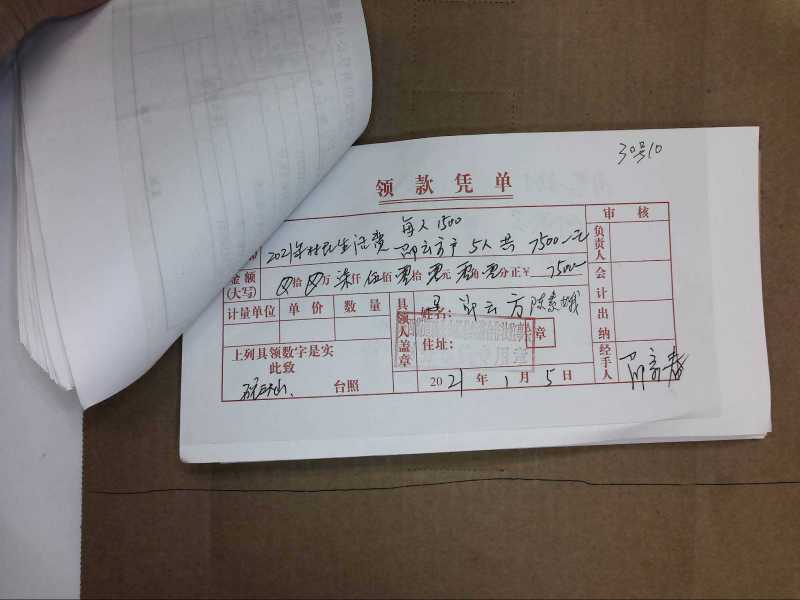 30号10
领款凭单
每人1500
2021年村民生活费 邵云方户 5人共 7500元
审核
金额(大写) 拾 万 柒仟 伍佰 零拾 零元 零角 零分正¥ 7500
负责人
会计
计量单位 单价 数量
具领人盖章
姓名: 邵云方 陈素娥
住址:
章
出纳
上列具领数字是实
此致
台照
2021年1月5日
经手人